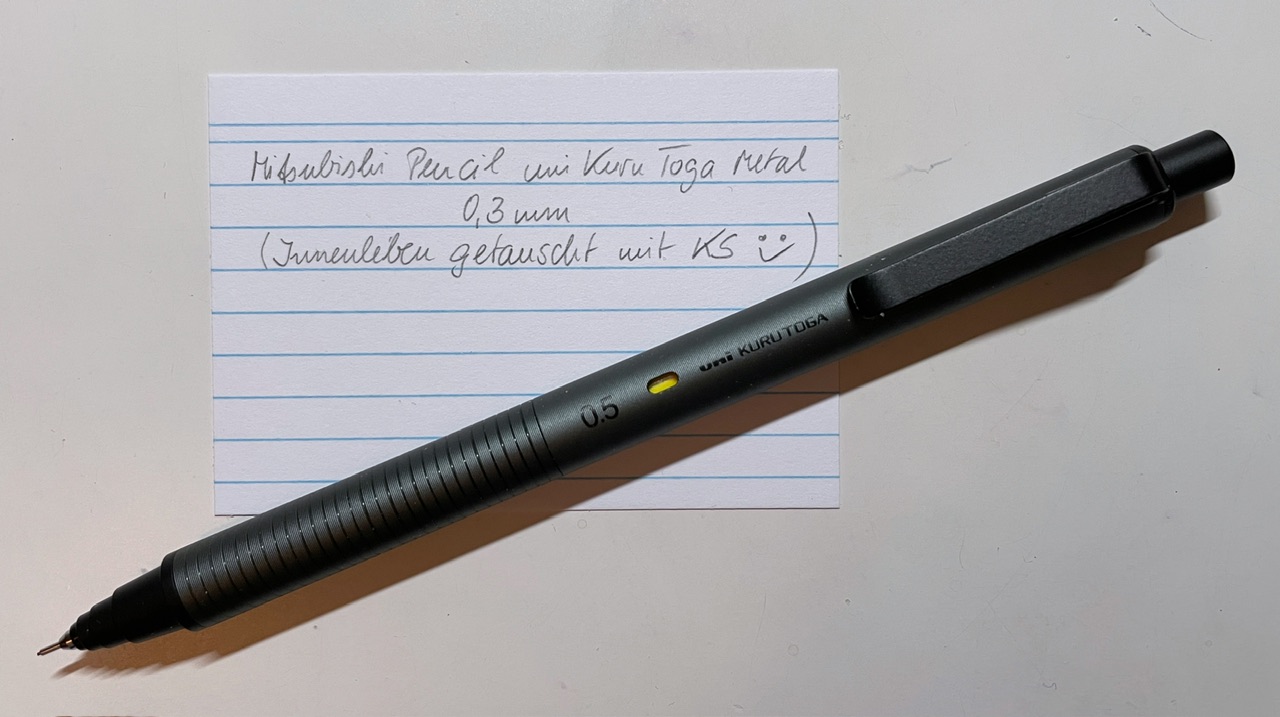 Mitsubishi Pencil uni Kuru Toga Metal
0,3 mm
(Innenleben getauscht mit KS ü)
uni KURUTOGA
0.5